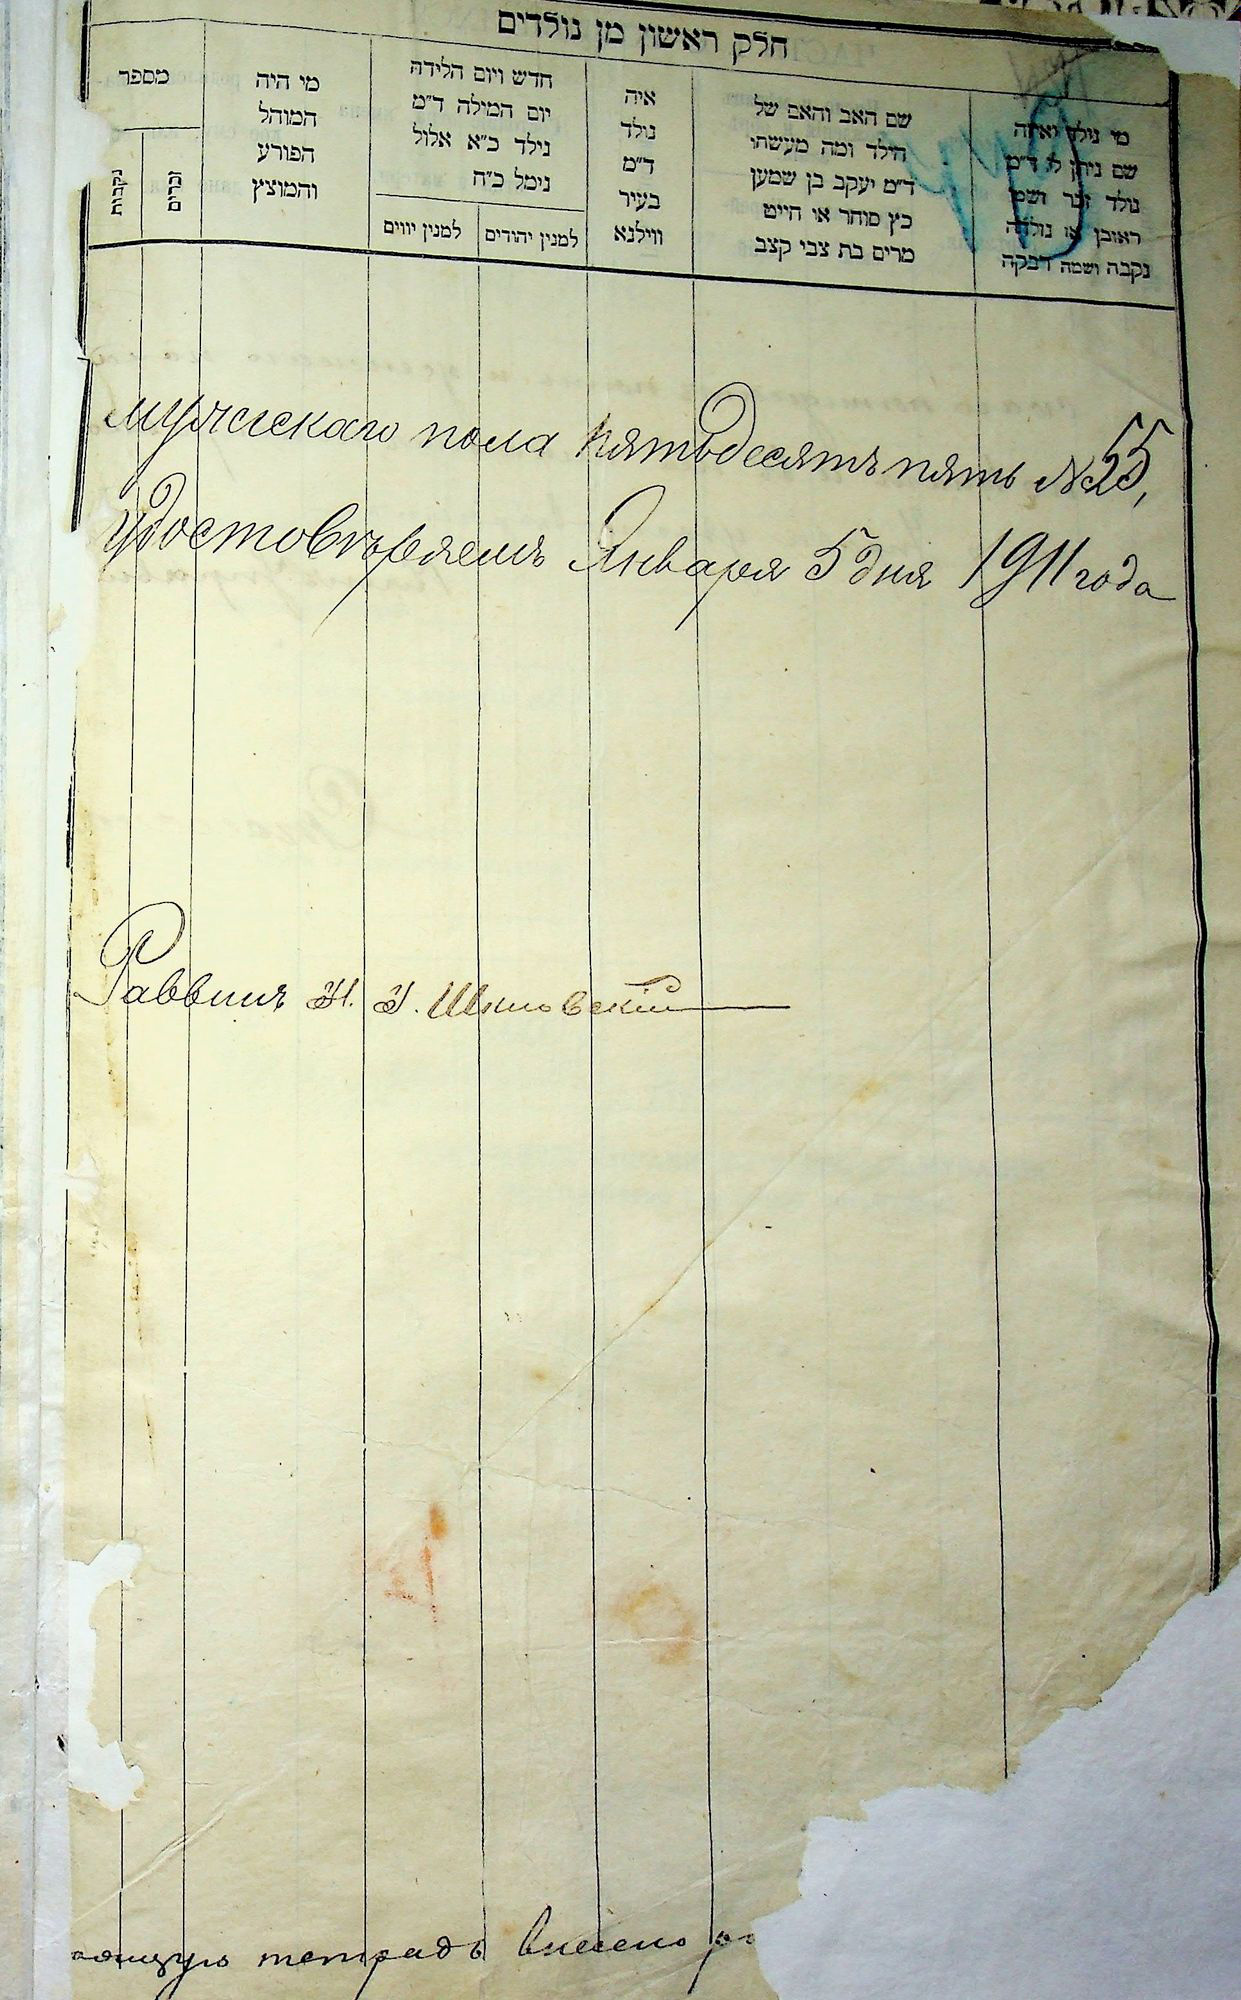 חלק ראשון מן נולדים
מי נולד ואיזה
שם ניתן לו ד"מ
נולד זכר ושמו
ראובן או נולדה
נקבה ושמה רבקה
שם האב והאם של
הילד ומה מעשהו
ד"מ יעקב בן שמען
כץ סוחר או חייט
מרים בת צבי קצב
איה
נולד
ד"מ
בעיר
ווילנא
חדש ויום הלידה
יום המילה ד"מ
נילד כ"א אלול
נימל כ"ח
למנין יהודים
למנין יווים
מי היה
המוהל
הפורע
והמוצץ
מספר
זכרים
נקבות
мужскаго пола пятьдесятъ пять №55,
удостовѣряемъ Января 5 дня 1911 года
Раввинъ Шкловскій
тетрадь внесено